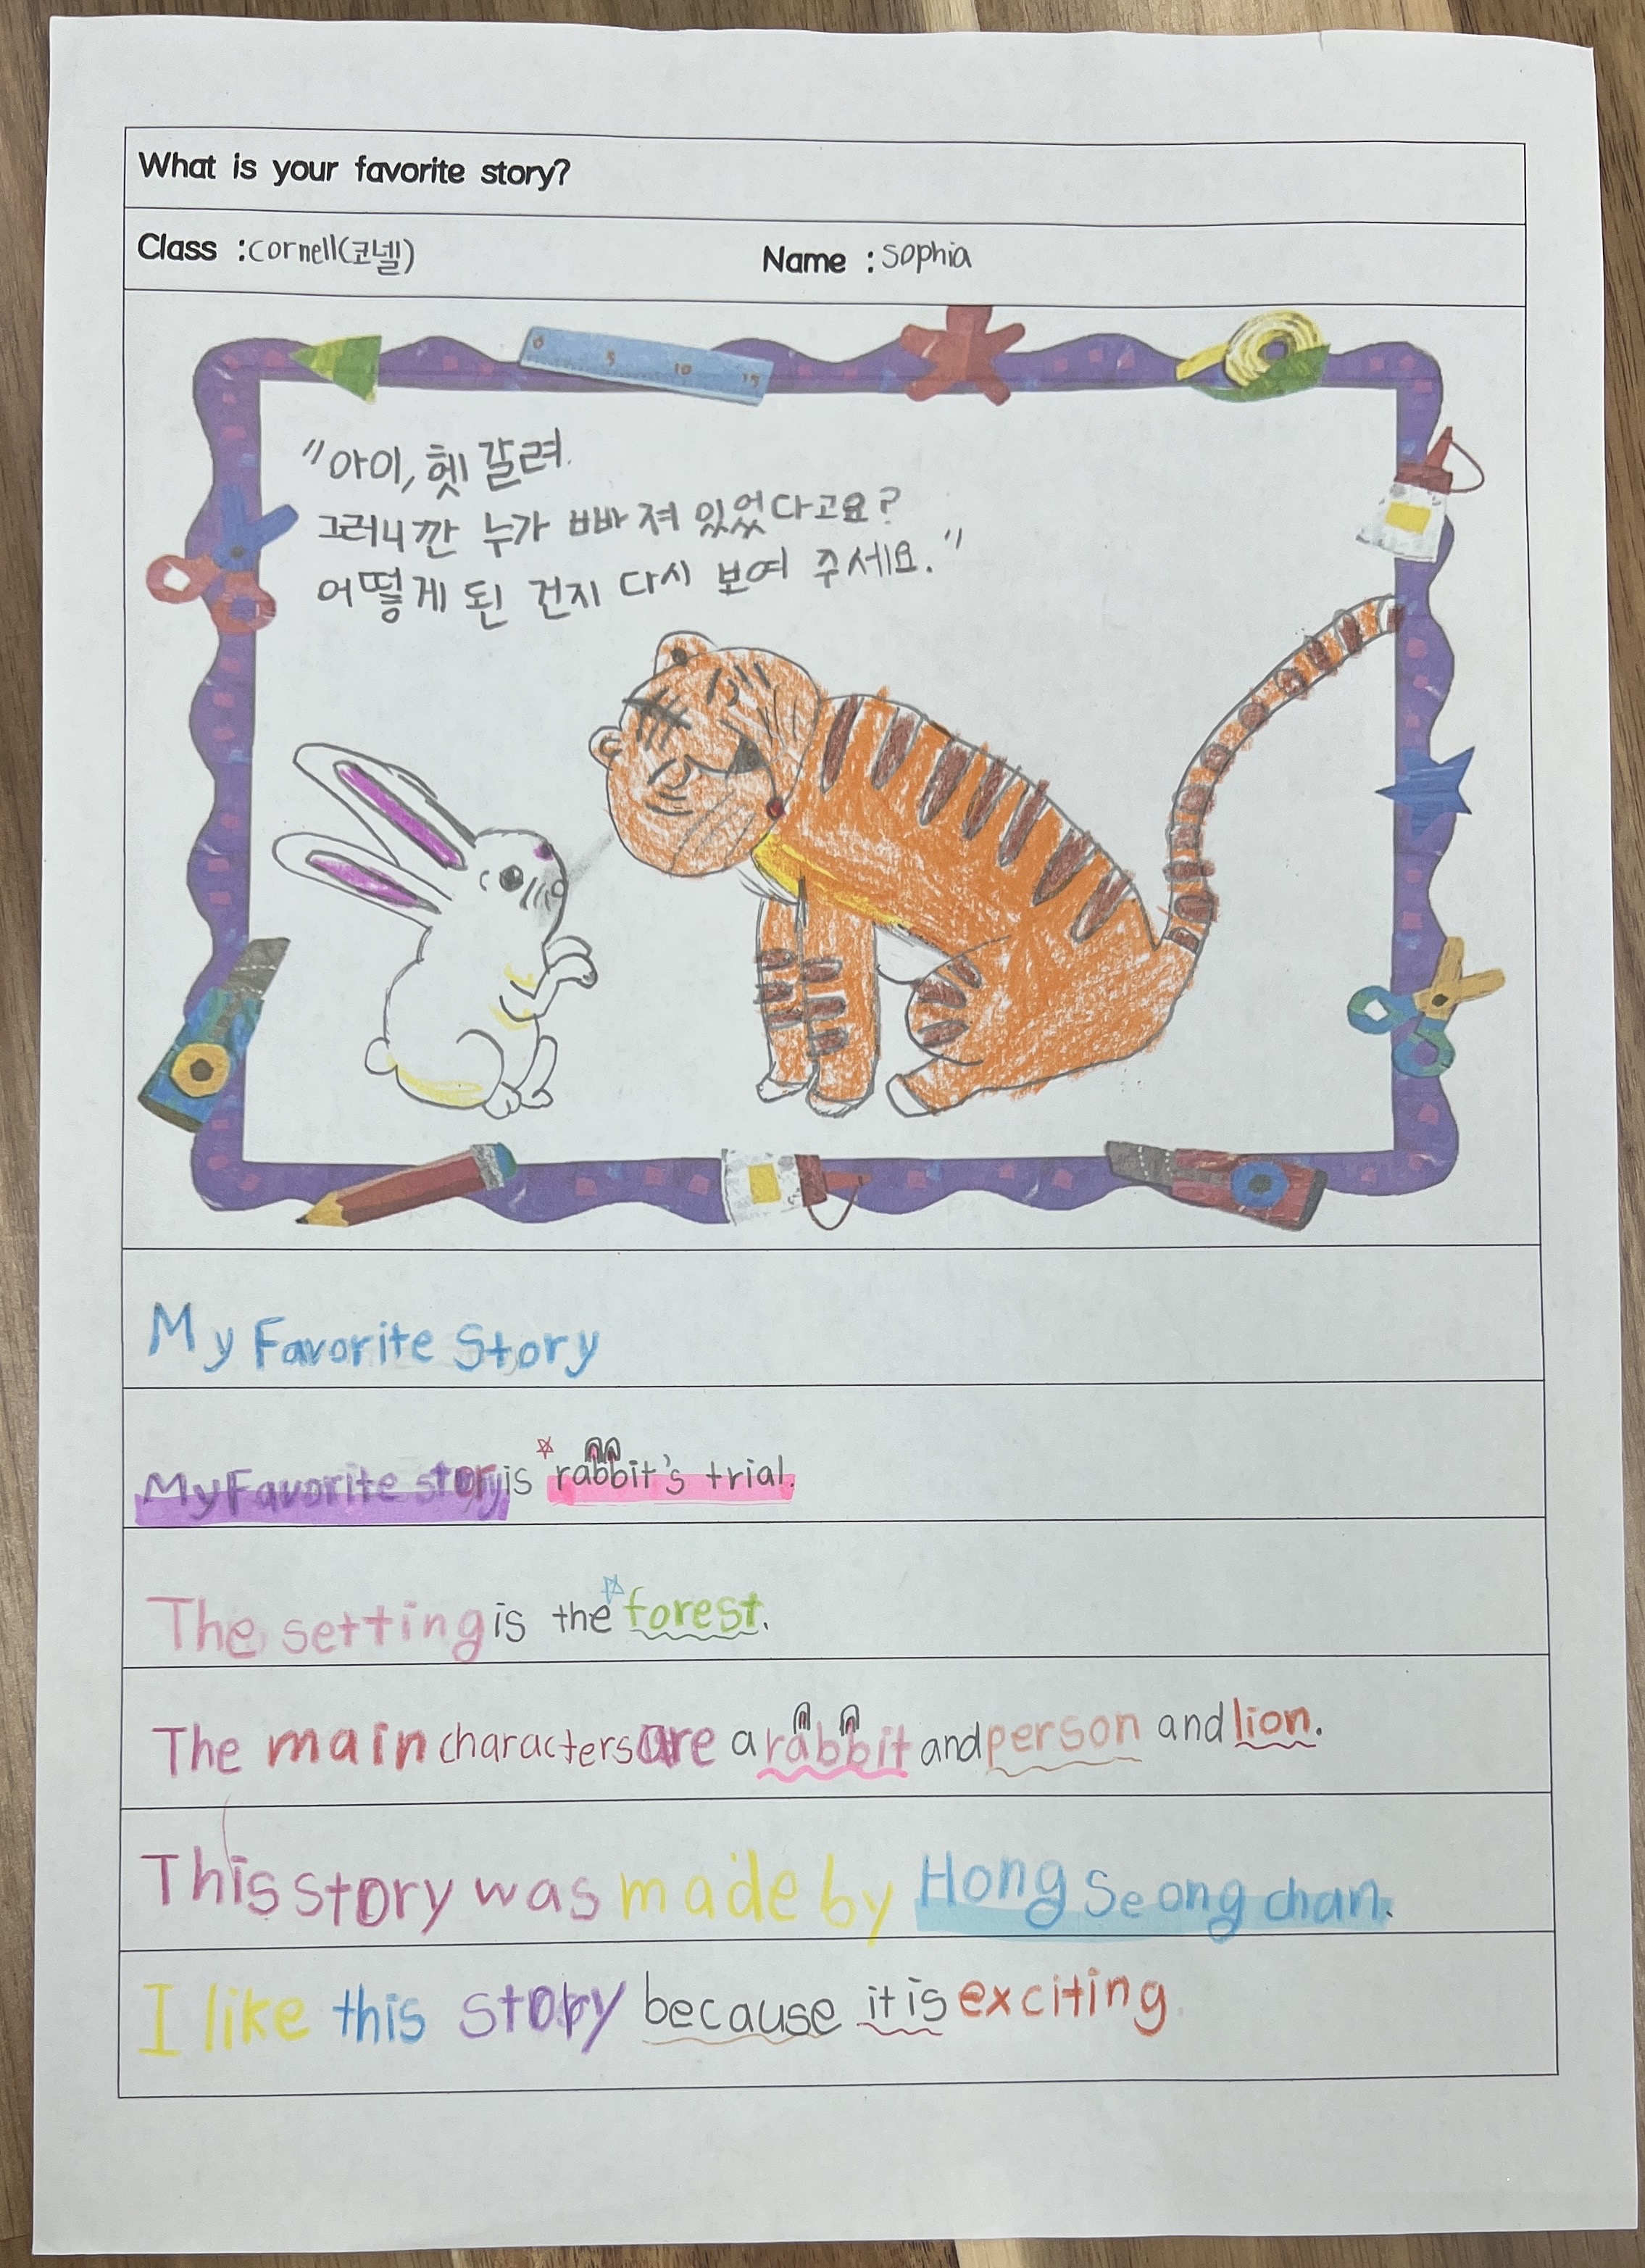 What is your favorite story?
Class : cornell(코넬) Name : sophia
0 5 10 15
"아이, 헷갈려.
그러니깐 누가 빠져 있었다고요?
어떻게 된 건지 다시 보여 주세요."
My Favorite Story
My Favorite story is rabbit's trial.
The setting is the forest.
The main characters are a rabbit and person and lion.
This story was made by Hong Seong chan.
I like this story because it is exciting